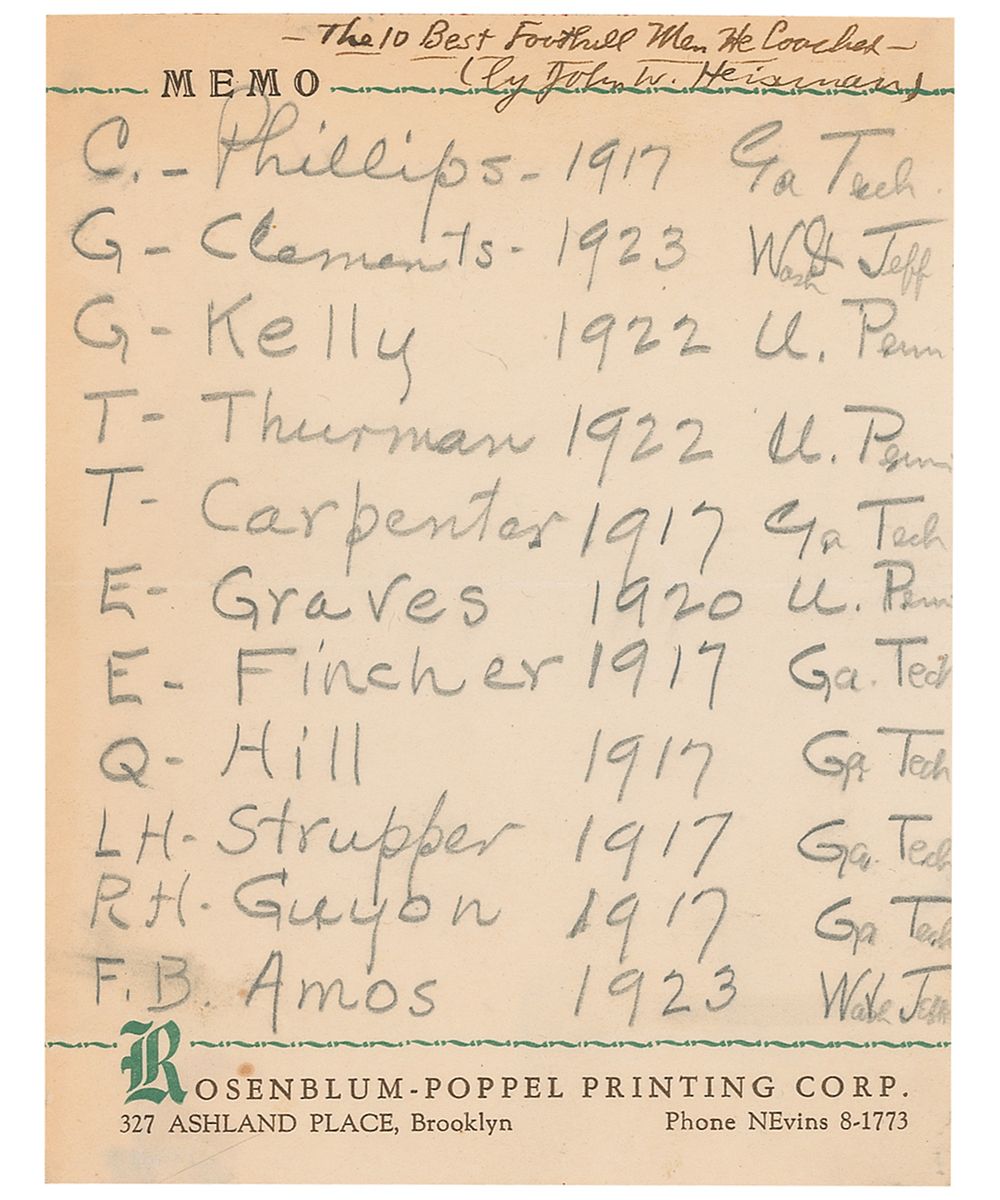 — The 10 Best Football Men He Coached —
MEMO
(by John W. Heisman)
C. - Phillips - 1917 Ga Tech.
G - Clements - 1923 Wash & Jeff
G - Kelly 1922 U. Penn
T - Thurman 1922 U. Penn
T - Carpenter 1917 Ga Tech
E - Graves 1920 U. Penn
E - Fincher 1917 Ga. Tech
Q - Hill 1917 Ga Tech
LH - Strupper 1917 Ga. Tech
RH - Guyon 1917 Ga Tech
F.B. Amos 1923 Wash Jeff
ROSENBLUM-POPPEL PRINTING CORP.
327 ASHLAND PLACE, Brooklyn Phone NEvins 8-1773